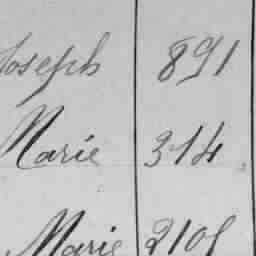 Joseph 891
Marie 314
Marie 2105